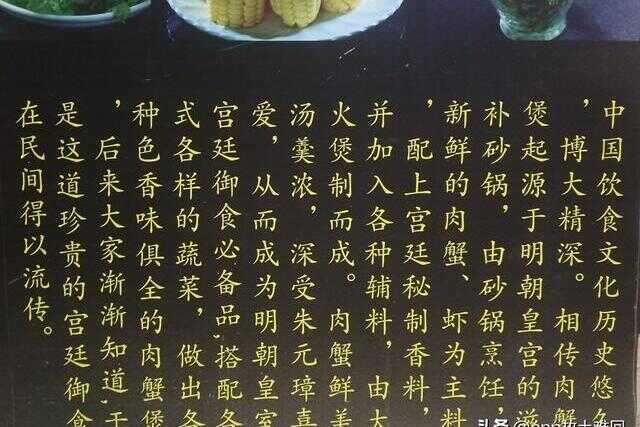 中国饮食文化历史悠久
，博大精深。相传肉蟹
煲起源于明朝皇宫的滋
补砂锅，由砂锅烹饪，
新鲜的肉蟹、虾为主料
，配上宫廷秘制香料，
并加入各种辅料，由大
火煲制而成。肉蟹鲜美
汤羹浓，深受朱元璋喜
爱，从而成为明朝皇室
宫廷御食必备品，搭配各
式各样的蔬菜，做出各
种色香味俱全的肉蟹煲
，后来大家渐渐知道，于
是这道珍贵的宫廷御食
在民间得以流传。